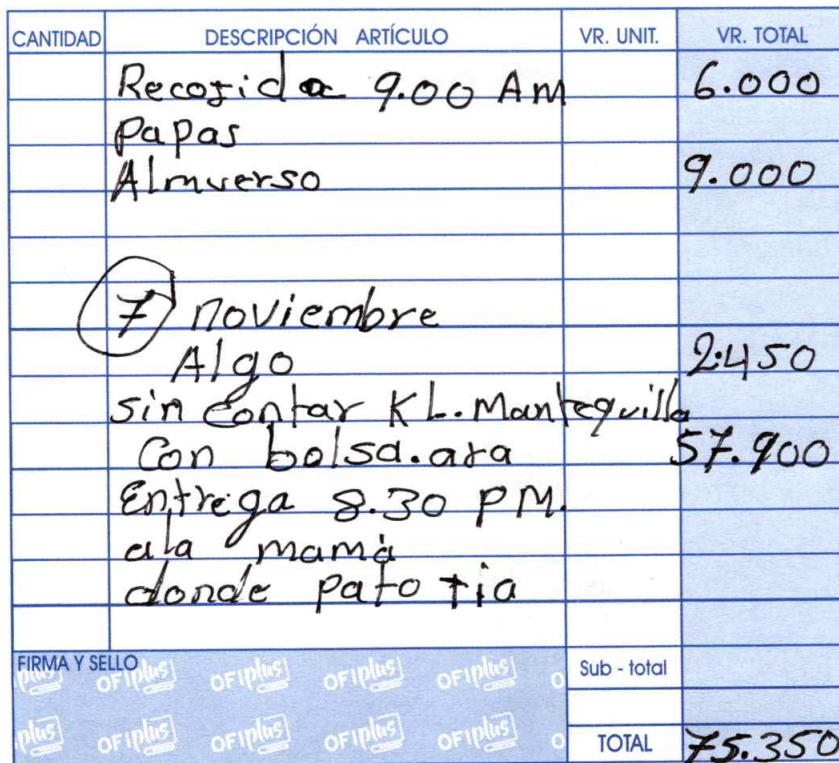 CANTIDAD DESCRIPCIÓN ARTÍCULO VR. UNIT. VR. TOTAL
Recogida 9.00 AM 6.000
Papas
Almuerso 9.000
7 noviembre
Algo 2.450
sin contar KL. Mantequilla
Con bolsa.ara 57.900
Entrega 8.30 PM.
ala mamá
donde pato tia
FIRMA Y SELLO Sub - total
plus OFIplus OFIplus OFIplus OFIplus O
plus OFIplus OFIplus OFIplus OFIplus O
TOTAL 75.350